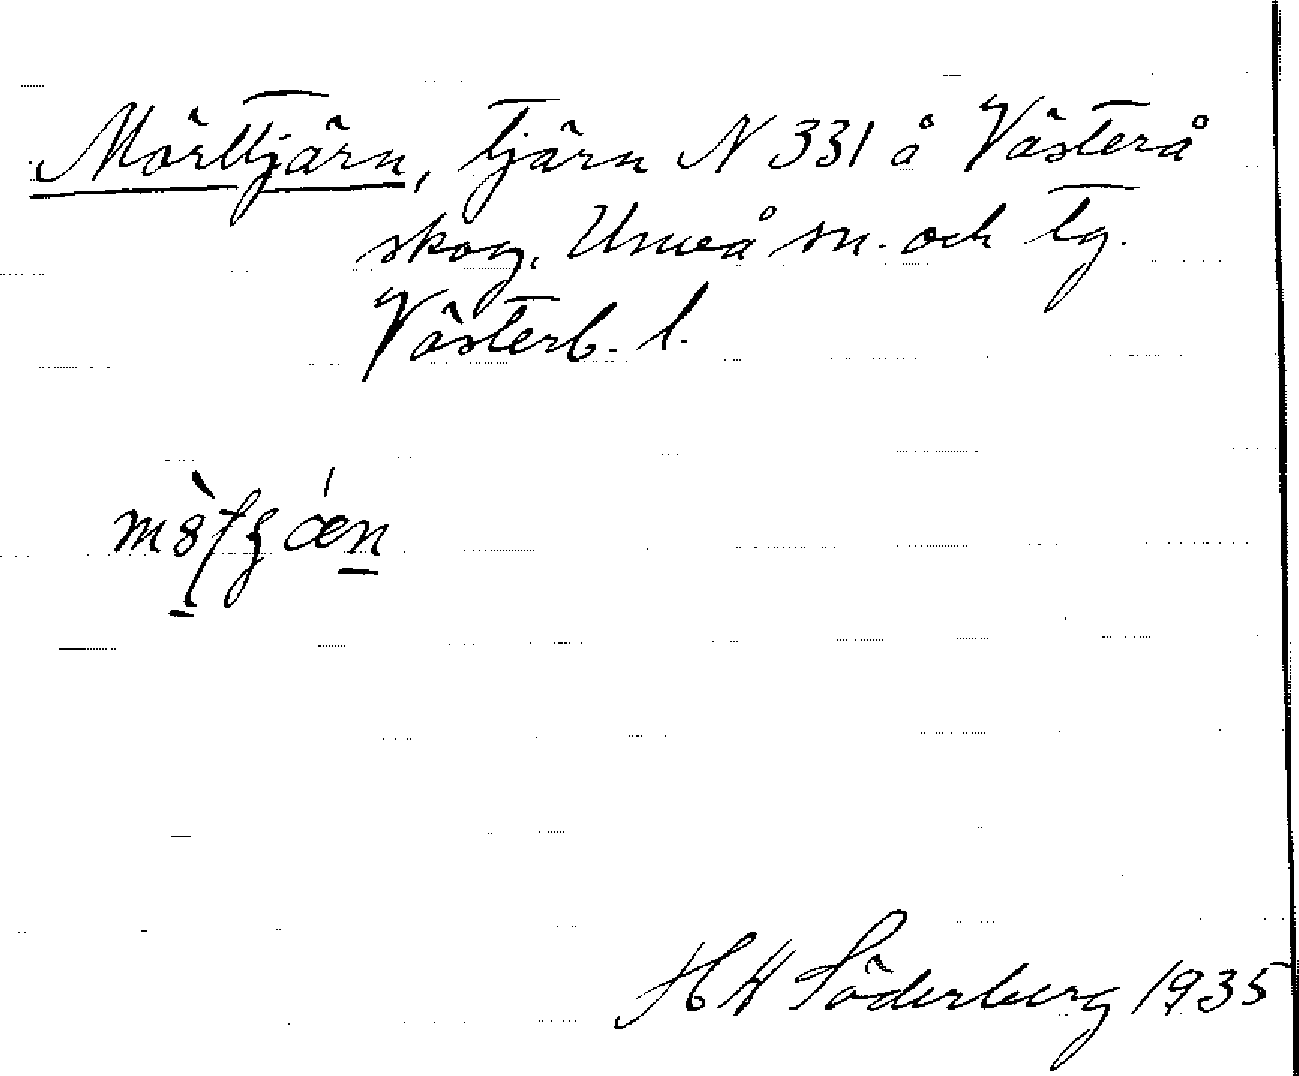 Mörttjärn, tjärn N 331 å Västerå
skog, Umeå sn. och tg.
Västerb. l.
H W Söderberg 1935